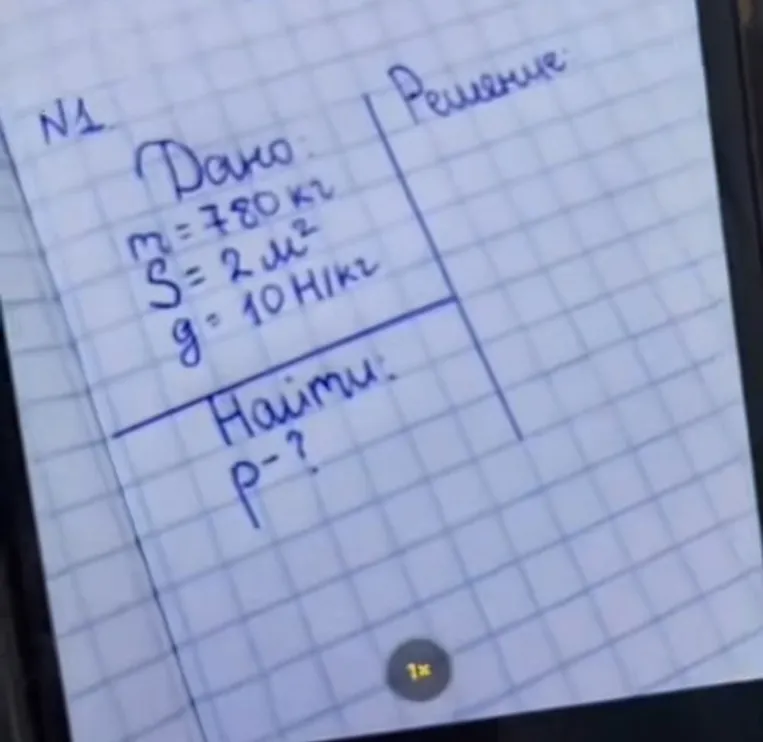 N1.
Дано:
m = 780 кг
S = 2 м²
g = 10 Н/кг
Найти:
p - ?
Решение:
1x